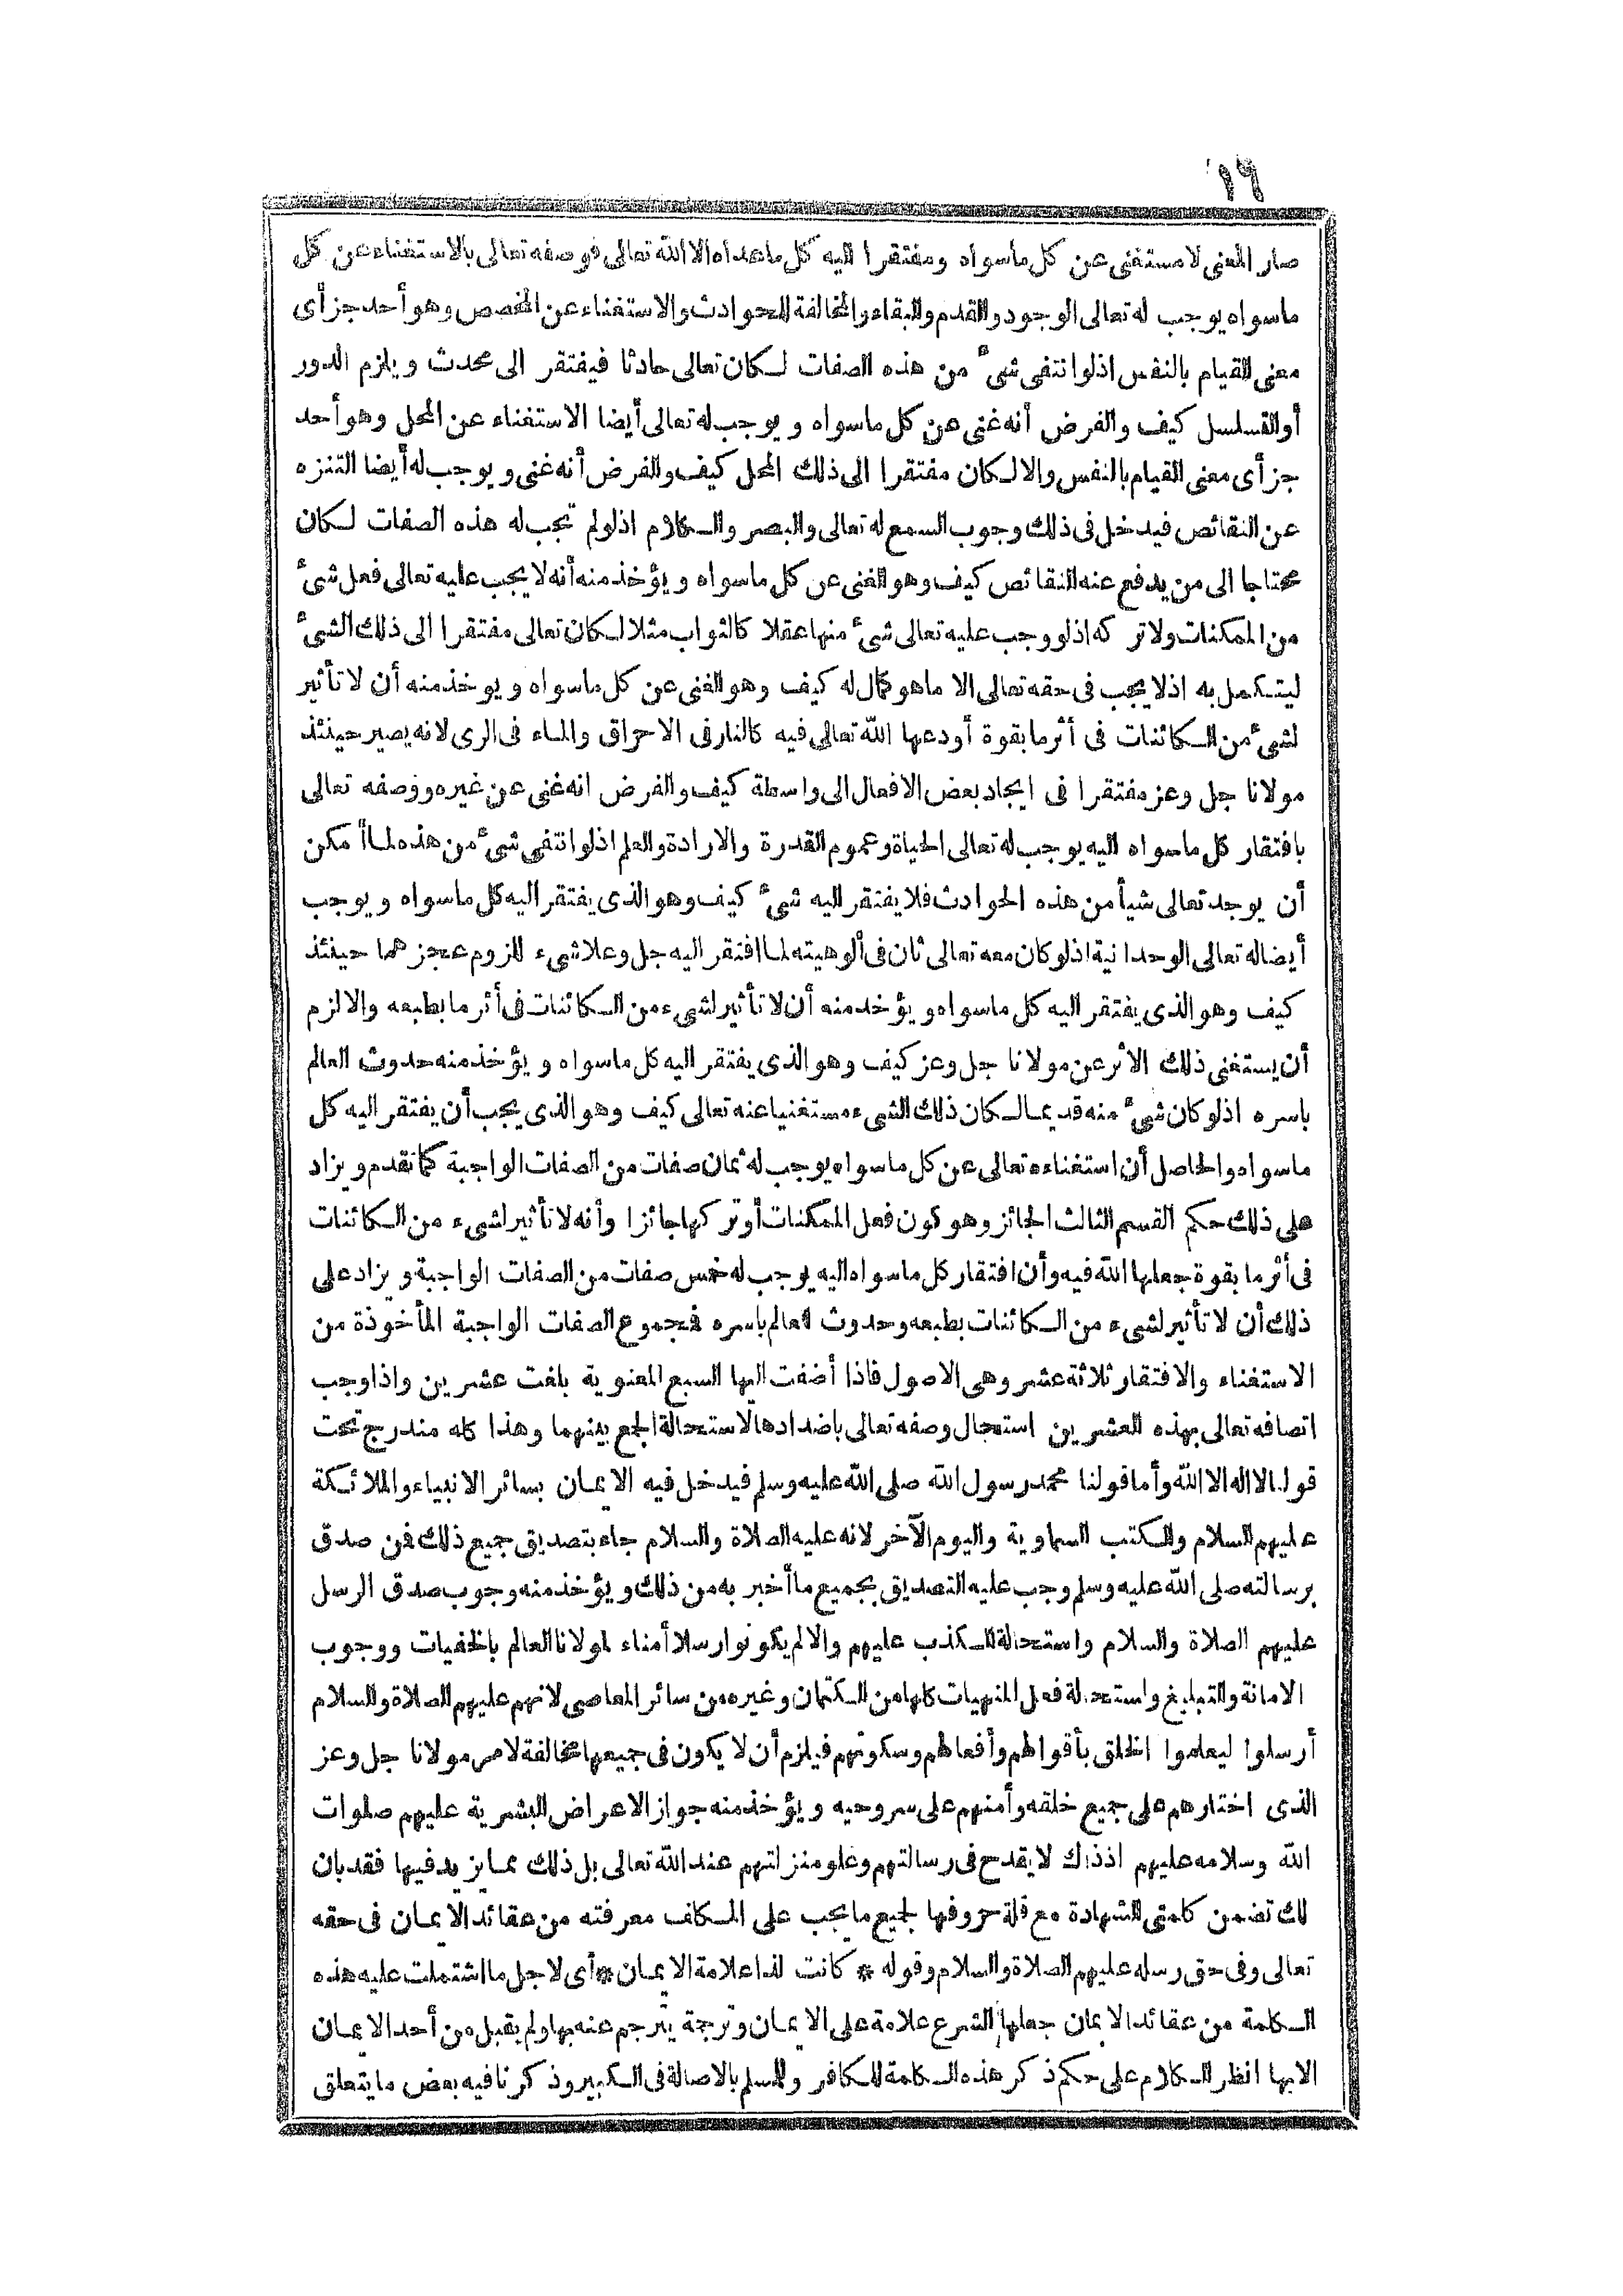 ١٩
صار المعنى لا مستغنى عن كل ماسواه ومفتقرا اليه كل ماعداه الا الله تعالى فوصفه تعالى بالاستغناء عن كل
ماسواه يوجب له تعالى الوجود والقدم والبقاء والمخالفة للحوادث والاستغناء عن المخصص وهو أحد جزأى
معنى القيام بالنفس اذلو انتفى شئ من هذه الصفات لكان تعالى حادثا فيفتقر الى محدث ويلزم الدور
أو التسلسل كيف والفرض أنه غنى عن كل ماسواه ويوجب له تعالى أيضا الاستغناء عن المحل وهو أحد
جزأى معنى القيام بالنفس والا لكان مفتقرا الى ذلك المحل كيف والفرض أنه غنى ويوجب له أيضا التنزه
عن النقائص فيدخل فى ذلك وجوب السمع له تعالى والبصر والكلام اذلولم تجب له هذه الصفات لكان
محتاجا الى من يدفع عنه النقائص كيف وهو الغنى عن كل ماسواه ويؤخذ منه أنه لا يجب عليه تعالى فعل شئ
من الممكنات ولا تركه اذلو وجب عليه تعالى شئ منها عقلا كالثواب مثلا لكان تعالى مفتقرا الى ذلك الشئ
ليتكمل به اذلا يجب فى حقه تعالى الا ماهو كمال له كيف وهو الغنى عن كل ماسواه ويوخذ منه أن لا تأثير
لشئ من الكائنات فى أثرما بقوة أودعها الله تعالى فيه كالنار فى الاحراق والماء فى الرى لانه يصير حينئذ
مولانا جل وعز مفتقرا فى ايجاد بعض الافعال الى واسطة كيف والفرض انه غنى عن غيره ووصفه تعالى
بافتقار كل ماسواه اليه يوجب له تعالى الحياة وعموم القدرة والارادة والعلم اذلو انتفى شئ من هذه لما أمكن
أن يوجد تعالى شيأ من هذه الحوادث فلا يفتقر اليه شئ كيف وهو الذى يفتقر اليه كل ماسواه ويوجب
أيضا له تعالى الوحدانية اذلو كان معه تعالى ثان فى ألوهيته لما افتقر اليه جل وعلا شىء للزوم عجزهما حينئذ
كيف وهو الذى يفتقر اليه كل ماسواه ويؤخذ منه أن لا تأثير لشىء من الكائنات فى أثر ما بطبعه والا لزم
أن يستغنى ذلك الأثر عن مولانا جل وعز كيف وهو الذى يفتقر اليه كل ماسواه ويؤخذ منه حدوث العالم
باسره اذلو كان شئ منه قديما لكان ذلك الشىء مستغنيا عنه تعالى كيف وهو الذى يجب أن يفتقر اليه كل
ماسواه والحاصل أن استغناءه تعالى عن كل ماسواه يوجب له ثمان صفات من الصفات الواجبة كما تقدم ويزاد
على ذلك حكم القسم الثالث الجائز وهو كون فعل الممكنات أوتركها جائزا وأنه لا تأثير لشىء من الكائنات
فى أثر ما بقوة جعلها الله فيه وأن افتقار كل ماسواه اليه يوجب له خمس صفات من الصفات الواجبة ويزاد على
ذلك أن لا تأثير لشىء من الكائنات بطبعه وحدوث العالم باسره فمجموع الصفات الواجبة المأخوذة من
الاستغناء والافتقار ثلاثة عشر وهى الاصول فاذا أضفت اليها السبع المعنوية بلغت عشرين واذا وجب
اتصافه تعالى بهذه العشرين استحال وصفه تعالى باضدادها لاستحالة الجمع بينهما وهذا كله مندرج تحت
قولنا لا اله الا الله وأما قولنا محمد رسول الله صلى الله عليه وسلم فيدخل فيه الايمان بسائر الانبياء والملائكة
عليهم السلام والكتب السماوية واليوم الآخر لانه عليه الصلاة والسلام جاء بتصديق جميع ذلك فمن صدق
برسالته صلى الله عليه وسلم وجب عليه التصديق بجميع ما أخبر به من ذلك ويؤخذ منه وجوب صدق الرسل
عليهم الصلاة والسلام واستحالة الكذب عليهم والا لم يكونوا رسلا أمناء لمولانا العالم بالخفيات ووجوب
الامانة والتبليغ واستحالة فعل المنهيات كلها من الكتمان وغيره من سائر المعاصى لانهم عليهم الصلاة والسلام
أرسلوا ليعلموا الخلق بأقوالهم وأفعالهم وسكوتهم فيلزم أن لا يكون فى جميعها مخالفة لامر مولانا جل وعز
الذى اختارهم على جميع خلقه وأمنهم على سر وحيه ويؤخذ منه جواز الاعراض البشرية عليهم صلوات
الله وسلامه عليهم اذذاك لا يقدح فى رسالتهم وعلو منزلتهم عند الله تعالى بل ذلك مما يزيد فيها فقد بان
لك تضمن كلمتى الشهادة مع قلة حروفها لجميع ما يجب على المكلف معرفته من عقائد الايمان فى حقه
تعالى وفى حق رسله عليهم الصلاة والسلام وقوله * كانت لذا علامة الايمان * أى لاجل ما اشتملت عليه هذه
الكلمة من عقائد الايمان جعلها الشرع علامة على الايمان وترجمة يترجم عنه بها ولم يقبل من أحد الايمان
الابها انظر الكلام على حكم ذكر هذه الكلمة للكافر وللمسلم بالاصالة فى الكبير وذكرنا فيه بعض ما يتعلق